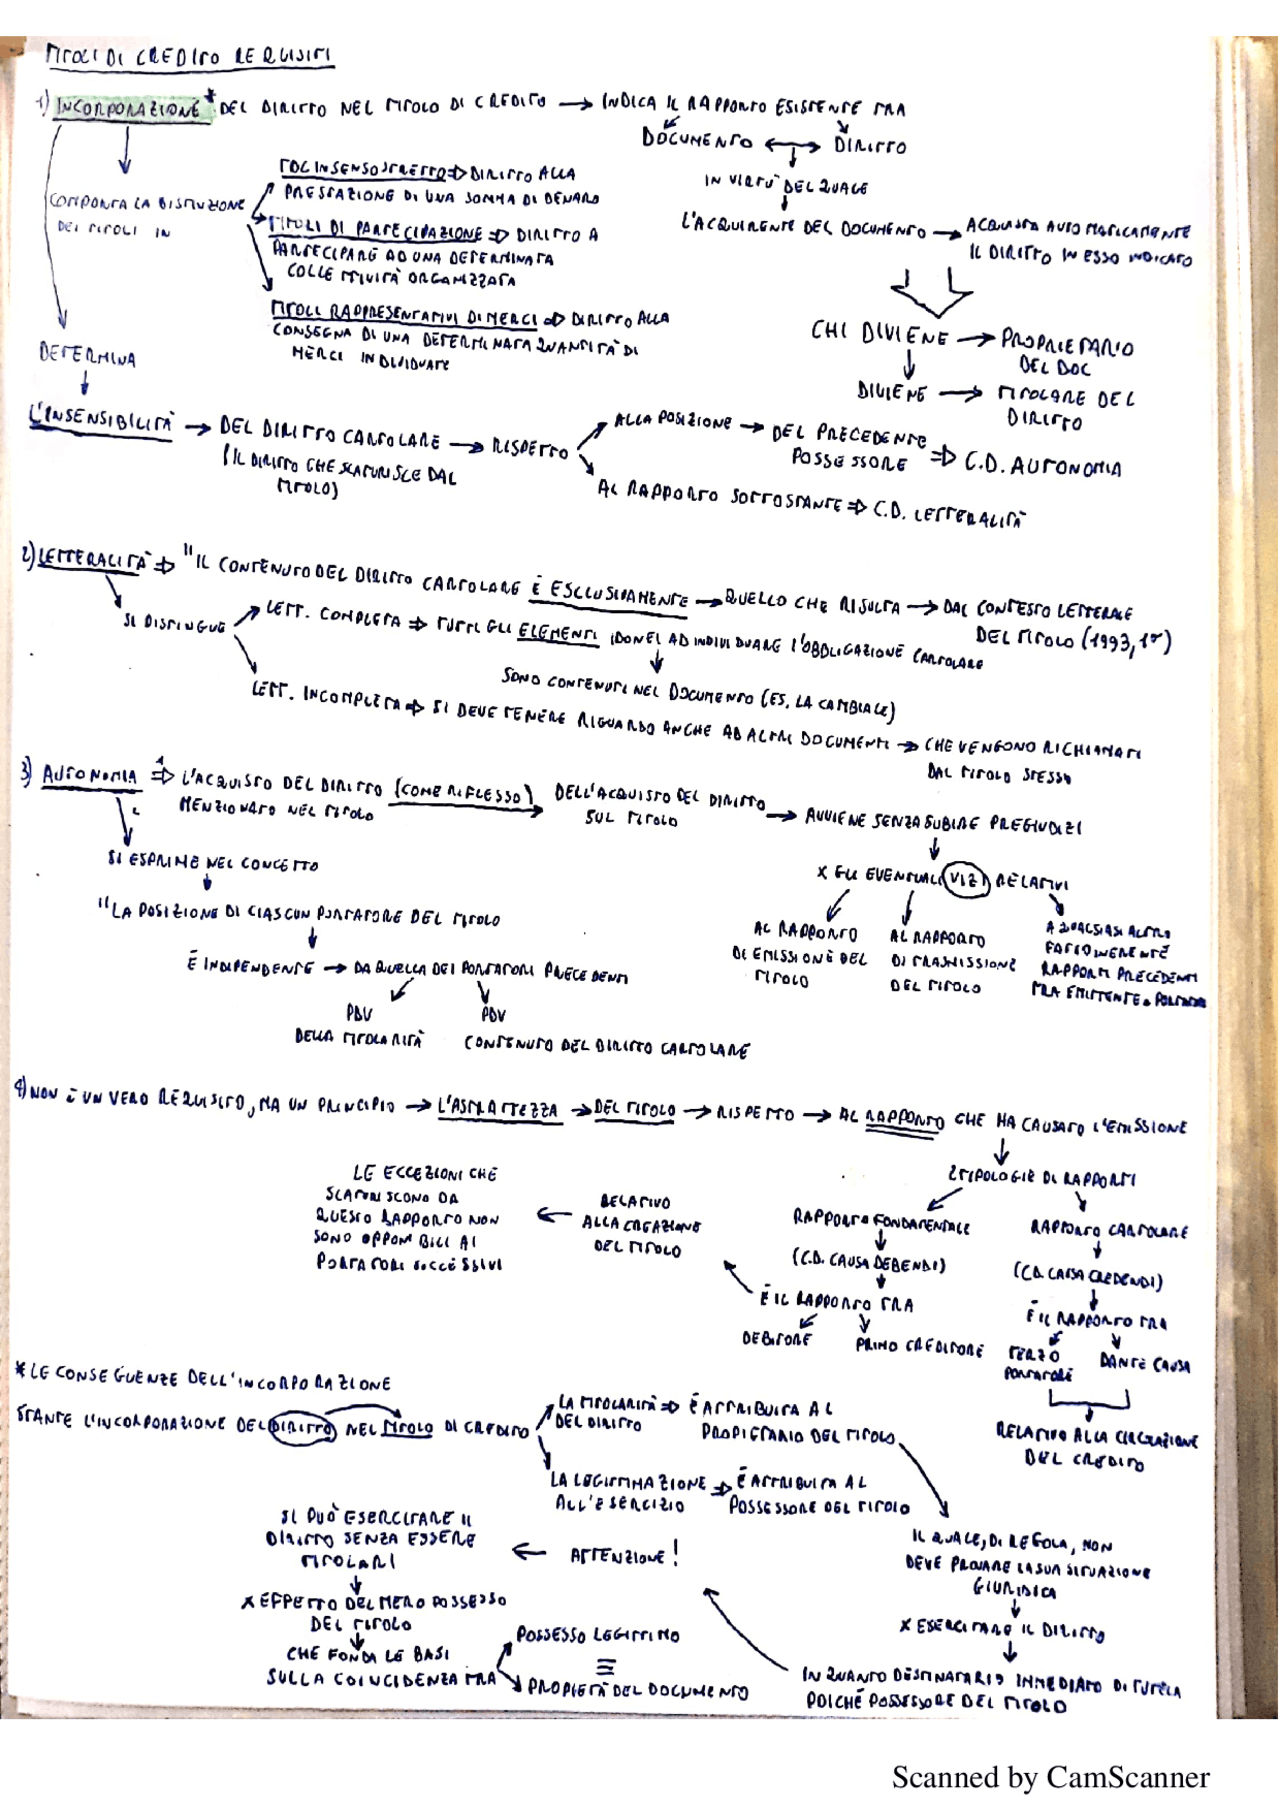 TITOLI DI CREDITO REQUISITI
1) INCORPORAZIONE * DEL DIRITTO NEL TITOLO DI CREDITO → INDICA IL RAPPORTO ESISTENTE TRA
DOCUMENTO ↔ DIRITTO
IN VIRTÙ DEL QUALE
L'ACQUIRENTE DEL DOCUMENTO → ACQUISTA AUTOMATICAMENTE
IL DIRITTO IN ESSO INDICATO
CHI DIVIENE → PROPRIETARIO
DEL DOC
DIVIENE → TITOLARE DEL
DIRITTO
COMPORTA LA DISTINZIONE
DEI TITOLI IN
TDC IN SENSO STRETTO ⇒ DIRITTO ALLA
PRESTAZIONE DI UNA SOMMA DI DENARO
TITOLI DI PARTECIPAZIONE ⇒ DIRITTO A
PARTECIPARE AD UNA DETERMINATA
COLLETTIVITÀ ORGANIZZATA
TITOLI RAPPRESENTATIVI DI MERCI ⇒ DIRITTO ALLA
CONSEGNA DI UNA DETERMINATA QUANTITÀ DI
MERCI INDIVIDUATE
DETERMINA
L'INSENSIBILITÀ → DEL DIRITTO CARTOLARE → RISPETTO
(IL DIRITTO CHE SCATURISCE DAL
TITOLO)
ALLA POSIZIONE → DEL PRECEDENTE
POSSESSORE ⇒ C.D. AUTONOMIA
AL RAPPORTO SOTTOSTANTE ⇒ C.D. LETTERALITÀ
2) LETTERALITÀ ⇒ "IL CONTENUTO DEL DIRITTO CARTOLARE È ESCLUSIVAMENTE → QUELLO CHE RISULTA → DAL CONTESTO LETTERALE
DEL TITOLO (1993, 1°)
SI DISTINGUE
LETT. COMPLETA ⇒ TUTTI GLI ELEMENTI IDONEI AD INDIVIDUARE L'OBBLIGAZIONE CARTOLARE
SONO CONTENUTI NEL DOCUMENTO (ES. LA CAMBIALE)
LETT. INCOMPLETA ⇒ SI DEVE TENERE RIGUARDO ANCHE AD ALTRI DOCUMENTI → CHE VENGONO RICHIAMATI
DAL TITOLO STESSO
3) AUTONOMIA ⇒ L'ACQUISTO DEL DIRITTO (COME RIFLESSO) DELL'ACQUISTO DEL DIRITTO
MENZIONATO NEL TITOLO → SUL TITOLO → AVVIENE SENZA SUBIRE PREGIUDIZI
X GLI EVENTUALI VIZI RELATIVI
AL RAPPORTO
DI EMISSIONE DEL
TITOLO
AL RAPPORTO
DI TRASMISSIONE
DEL TITOLO
A QUALSIASI ALTRO
FATTO INERENTE
RAPPORTI PRECEDENTI
TRA EMITTENTE
SI ESPRIME NEL CONCETTO
"LA POSIZIONE DI CIASCUN PORTATORE DEL TITOLO
È INDIPENDENTE → DA QUELLA DEI PORTATORI PRECEDENTI
PDV
DELLA TITOLARITÀ
PDV
CONTENUTO DEL DIRITTO CARTOLARE
4) NON È UN VERO REQUISITO, MA UN PRINCIPIO → L'ASTRATTEZZA → DEL TITOLO → RISPETTO → AL RAPPORTO CHE HA CAUSATO L'EMISSIONE
2 TIPOLOGIE DI RAPPORTI
RAPPORTO FONDAMENTALE
(C.D. CAUSA DEBENDI)
È IL RAPPORTO TRA
DEBITORE
PRIMO CREDITORE
RAPPORTO CARTOLARE
(C.D. CAUSA CREDENDI)
È IL RAPPORTO TRA
TERZO
PORTATORE
DANTE CAUSA
RELATIVO ALLA CIRCOLAZIONE
DEL CREDITO
RELATIVO
ALLA CREAZIONE
DEL TITOLO
LE ECCEZIONI CHE
SCATURISCONO DA
QUESTO RAPPORTO NON
SONO OPPONIBILI AI
PORTATORI SUCCESSIVI
* LE CONSEGUENZE DELL'INCORPORAZIONE
STANTE L'INCORPORAZIONE DEL DIRITTO NEL TITOLO DI CREDITO
LA TITOLARITÀ ⇒ È ATTRIBUITA AL
DEL DIRITTO PROPIETARIO DEL TITOLO
LA LEGITTIMAZIONE ⇒ È ATTRIBUITA AL
ALL'ESERCIZIO POSSESSORE DEL TITOLO
IL QUALE, DI REGOLA, NON
DEVE PROVARE LA SUA SITUAZIONE
GIURIDICA
X ESERCITARE IL DIRITTO
IN QUANTO DESTINATARIO IMMEDIATO DI TUTELA
POICHÉ POSSESSORE DEL TITOLO
ATTENZIONE!
SI PUÒ ESERCITARE IL
DIRITTO SENZA ESSERE
TITOLARI
X EFFETTO DEL MERO POSSESSO
DEL TITOLO
CHE FONDA LE BASI
SULLA COINCIDENZA TRA
POSSESSO LEGITTIMO
≡
PROPIETÀ DEL DOCUMENTO
Scanned by CamScanner